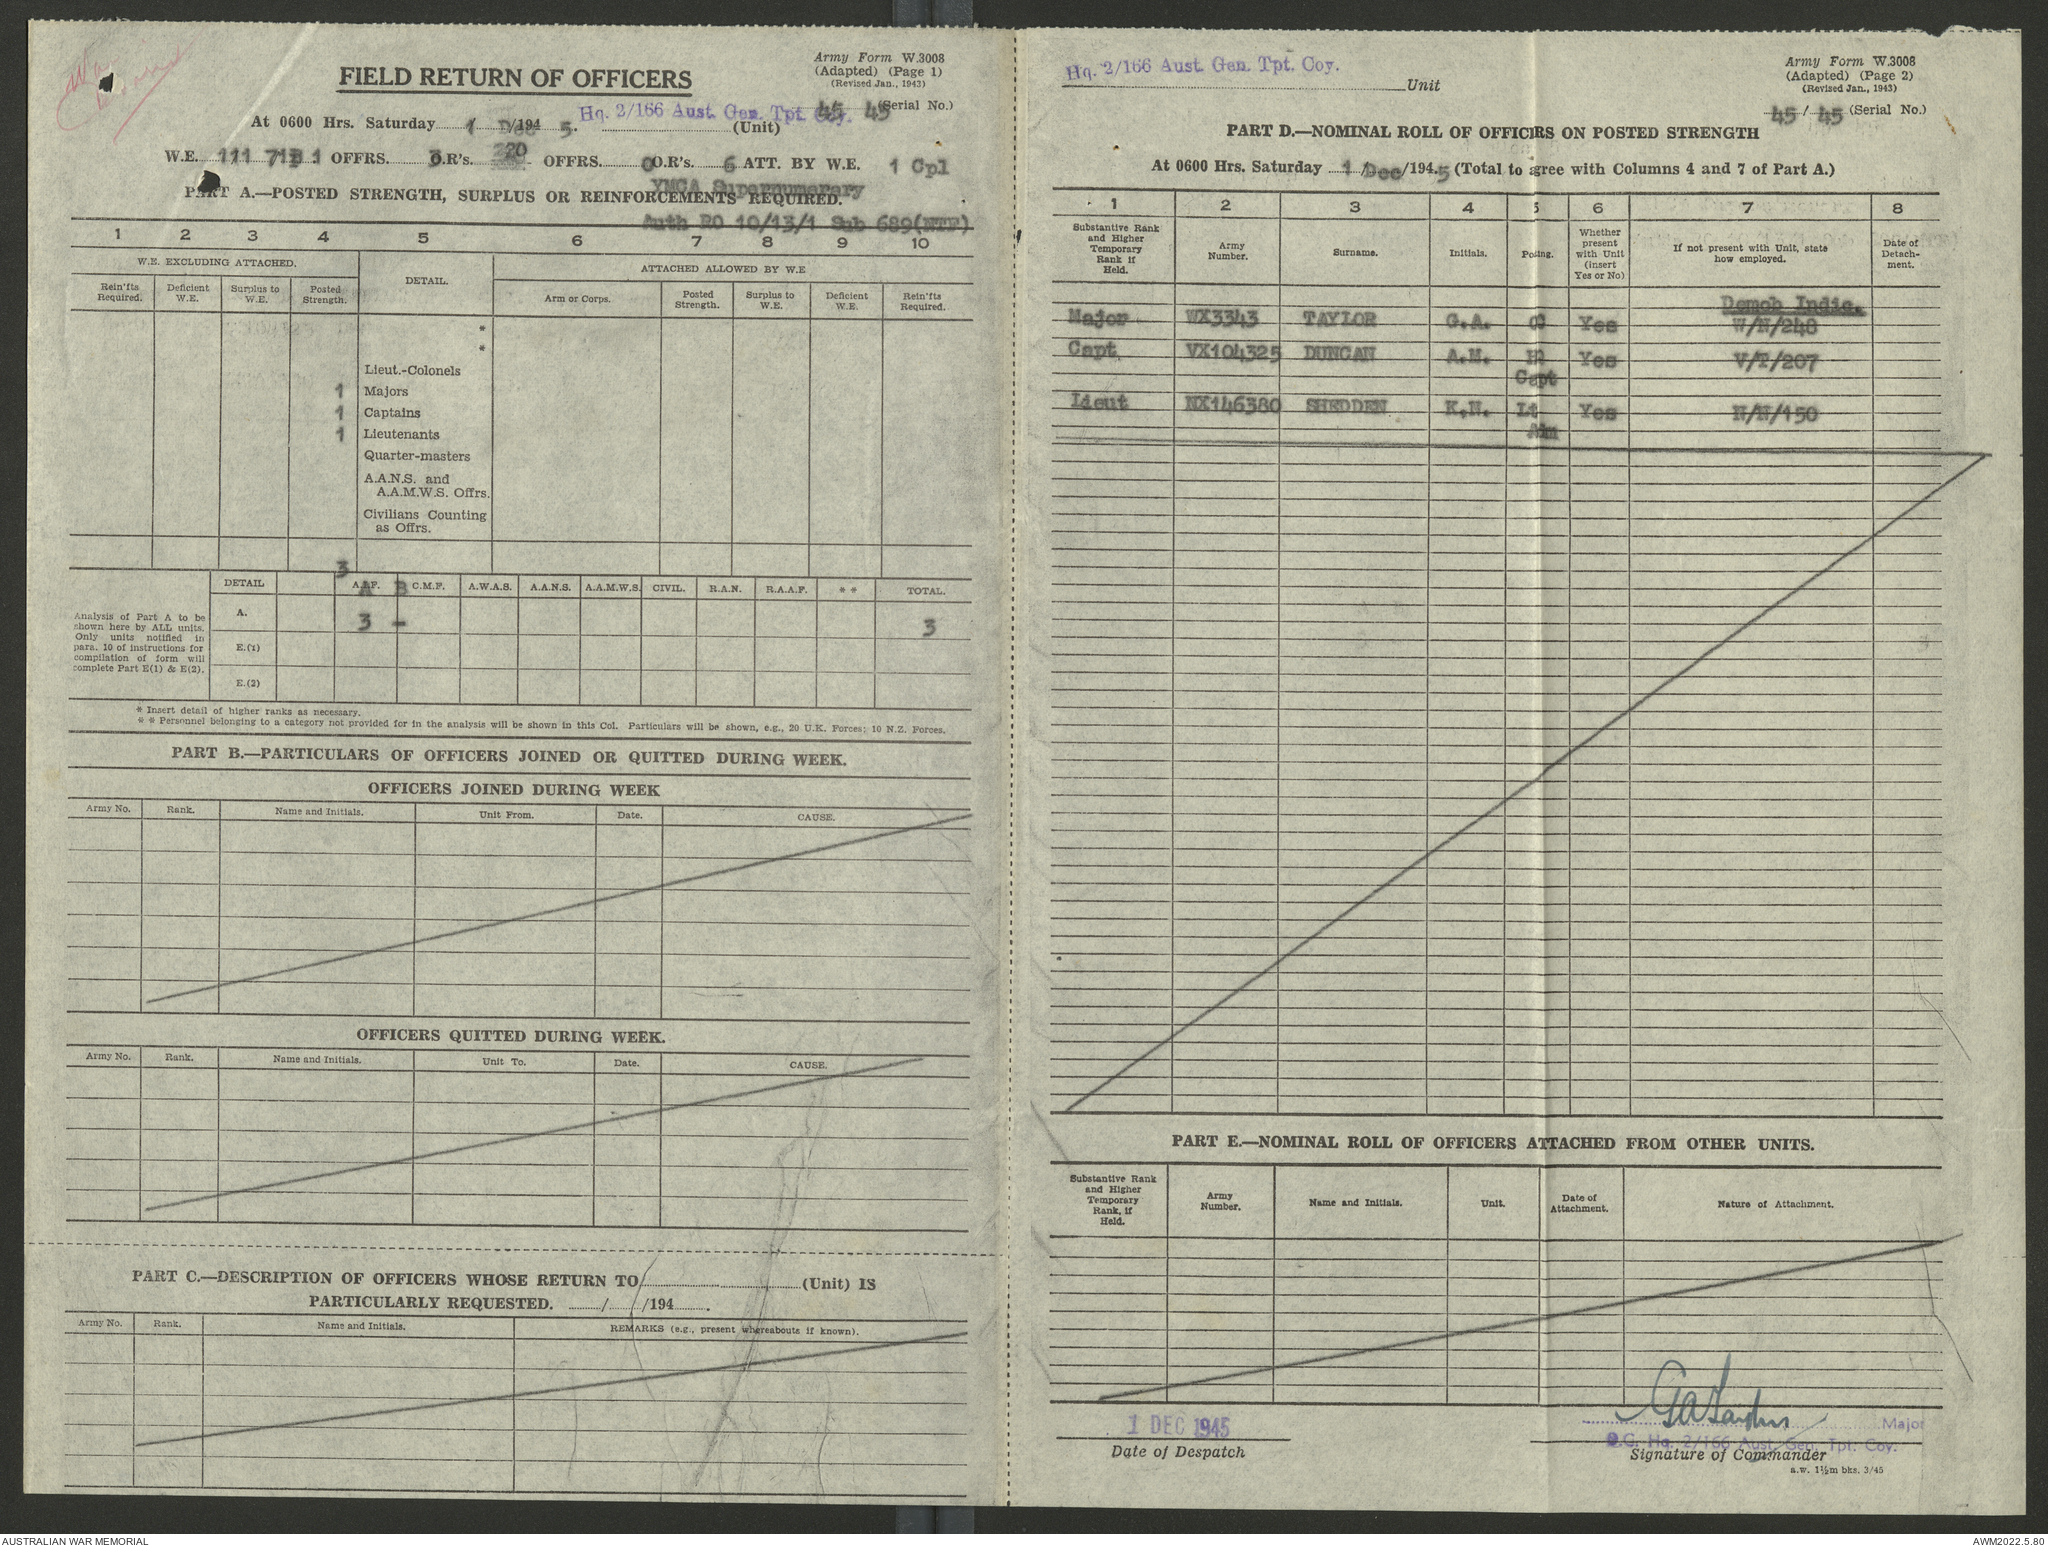 Army Form W.3008
(Adapted) (Page 1)
(Revised Jan., 1943)
FIELD RETURN OF OFFICERS
45 45 (Serial No.)
Hq. 2/166 Aust. Gen. Tpt. Coy.
At 0600 Hrs. Saturday 1/Dec/1945. (Unit)
W.E. 111 OFFRS. 3 O.R's. 20 OFFRS. 0 O.R's. 6 ATT. BY W.E. 1 Cpl
YMCA Supernumerary
PART A.—POSTED STRENGTH, SURPLUS OR REINFORCEMENTS REQUIRED.
Auth RO 10/13/1 Sub 689(NTF)
1 2 3 4 5 6 7 8 9 10
W.E. EXCLUDING ATTACHED. DETAIL. ATTACHED ALLOWED BY W.E
Rein'fts Required. Deficient W.E. Surplus to W.E. Posted Strength. Arm or Corps. Posted Strength. Surplus to W.E. Deficient W.E. Rein'fts Required.
*
*
Lieut.-Colonels
1 Majors
1 Captains
1 Lieutenants
Quarter-masters
A.A.N.S. and
A.A.M.W.S. Offrs.
Civilians Counting
as Offrs.
3
DETAIL A.I.F. C.M.F. A.W.A.S. A.A.N.S. A.A.M.W.S. CIVIL. R.A.N. R.A.A.F. * * TOTAL.
A B
Analysis of Part A to be
shown here by ALL units.
Only units notified in
para. 10 of instructions for
compilation of form will
complete Part E(1) & E(2).
A. 3 - 3
E.(1)
E.(2)
* Insert detail of higher ranks as necessary.
* * Personnel belonging to a category not provided for in the analysis will be shown in this Col. Particulars will be shown, e.g., 20 U.K. Forces; 10 N.Z. Forces.
PART B.—PARTICULARS OF OFFICERS JOINED OR QUITTED DURING WEEK.
OFFICERS JOINED DURING WEEK
Army No. Rank. Name and Initials. Unit From. Date. CAUSE.
OFFICERS QUITTED DURING WEEK.
Army No. Rank. Name and Initials. Unit To. Date. CAUSE.
PART C.—DESCRIPTION OF OFFICERS WHOSE RETURN TO (Unit) IS
PARTICULARLY REQUESTED. / /194 .
Army No. Rank. Name and Initials. REMARKS (e.g., present whereabouts if known).
Army Form W.3008
(Adapted) (Page 2)
(Revised Jan., 1943)
Hq. 2/166 Aust. Gen. Tpt. Coy.
Unit
45 / 45 (Serial No.)
PART D.—NOMINAL ROLL OF OFFICERS ON POSTED STRENGTH
At 0600 Hrs. Saturday 1/Dec/1945 (Total to agree with Columns 4 and 7 of Part A.)
1 2 3 4 5 6 7 8
Substantive Rank and Higher Temporary Rank if Held. Army Number. Surname. Initials. Posting. Whether present with Unit (insert Yes or No) If not present with Unit, state how employed. Date of Detachment.
Demob Indic.
Major WX3343 TAYLOR G.A. Yes W/N/248
Capt VX104325 DUNCAN A.M. Yes V/T/207
Capt
Lieut NX146380 SHEDDEN K.N. Lt Yes N/N/150
Adm
PART E.—NOMINAL ROLL OF OFFICERS ATTACHED FROM OTHER UNITS.
Substantive Rank and Higher Temporary Rank, if Held. Army Number. Name and Initials. Unit. Date of Attachment. Nature of Attachment.
1 DEC 1945
Date of Despatch
Major
O.C. Hq. 2/166 Aust. Gen. Tpt. Coy.
Signature of Commander
a.w. 1½m bks. 3/45
AUSTRALIAN WAR MEMORIAL
AWM2022.5.80